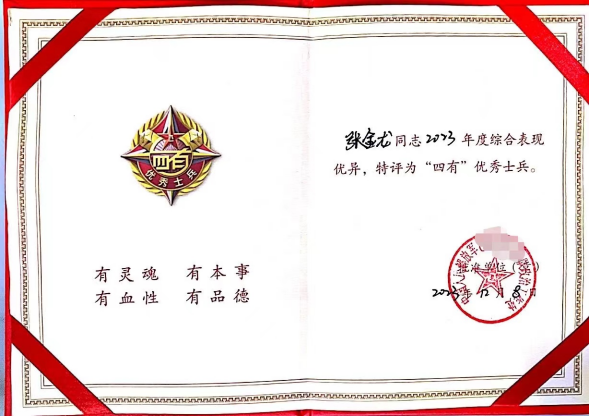 四有
优秀士兵
有灵魂 有本事
有血性 有品德
张金龙同志2023年度综合表现
优异，特评为“四有”优秀士兵。
批准单位（
2023年12月8日